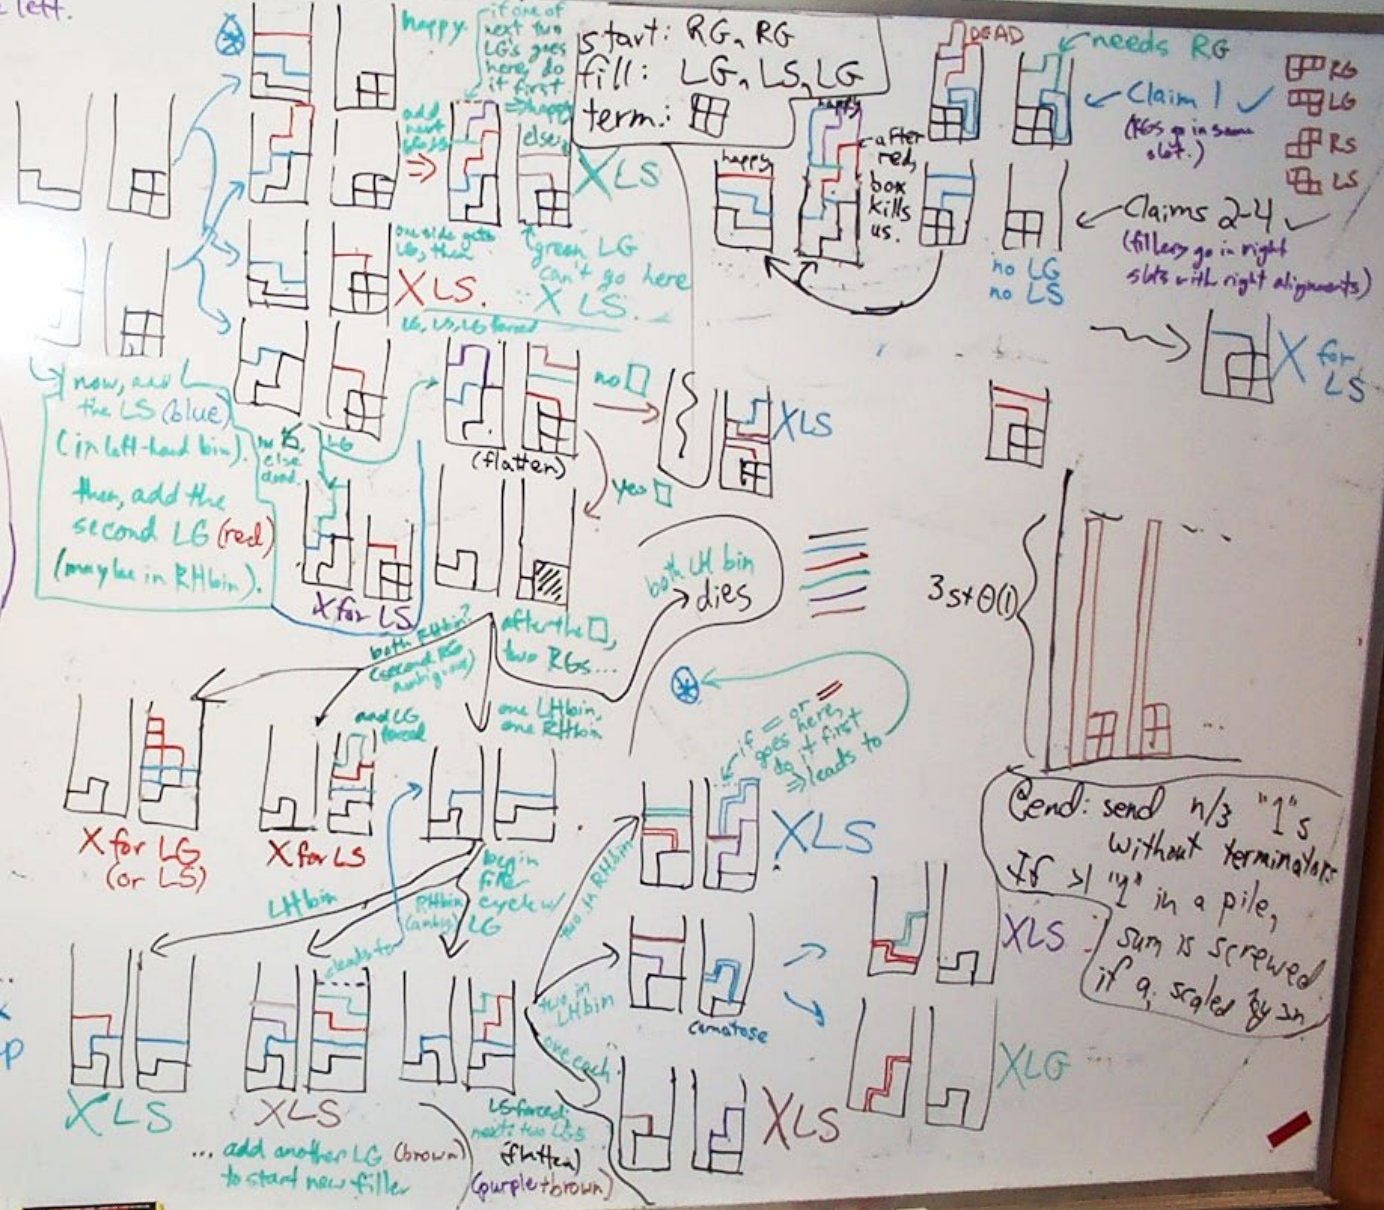 left.
happy
if one of
next two
LG's goes
here, do
it first
⇒happy
start: RG, RG
fill: LG, LS, LG
term.:
DEAD
needs RG
RG
LG
RS
LS
Claim 1 ✓
(RGs go in same
slot.)
add
next
else,
XLS
happy
happy
after
red,
box
kills
us.
Claims 2-4 ✓
(fillers go in right
slots with right alignments)
no LG
no LS
one side gets
LG, then
XLS.
green LG
can't go here
XLS.
LG, LS, LG forced
X for
LS
now, add
the LS (blue)
(in left-hand bin).
then, add the
second LG (red)
(maybe in RHbin).
else
dead.
LG
no □
XLS
(flatten)
yes □
X for LS
both LH bin
dies
3s+Θ(1)
both RHbin?
(second RG
ambiguous)
after the □,
two RGs...
one LHbin,
one RHbin
and LG
forced
if = or =
goes here,
do it first
⇒leads to
X for LG
(or LS)
X for LS
XLS
@end: send n/3 "1"s
without terminators
If >1 "1" in a pile,
sum is screwed
if aᵢ scaled by 3n
begin
filler
cycle w/
LG
LHbin
RHbin
(ambig)
leads to
two in RHbin
two in
LHbin
one each
comatose
XLS
XLG
XLS
XLS
XLS
... add another LG (brown)
to start new filler
LS forced;
next two LGs
(flatten)
(purple+brown)